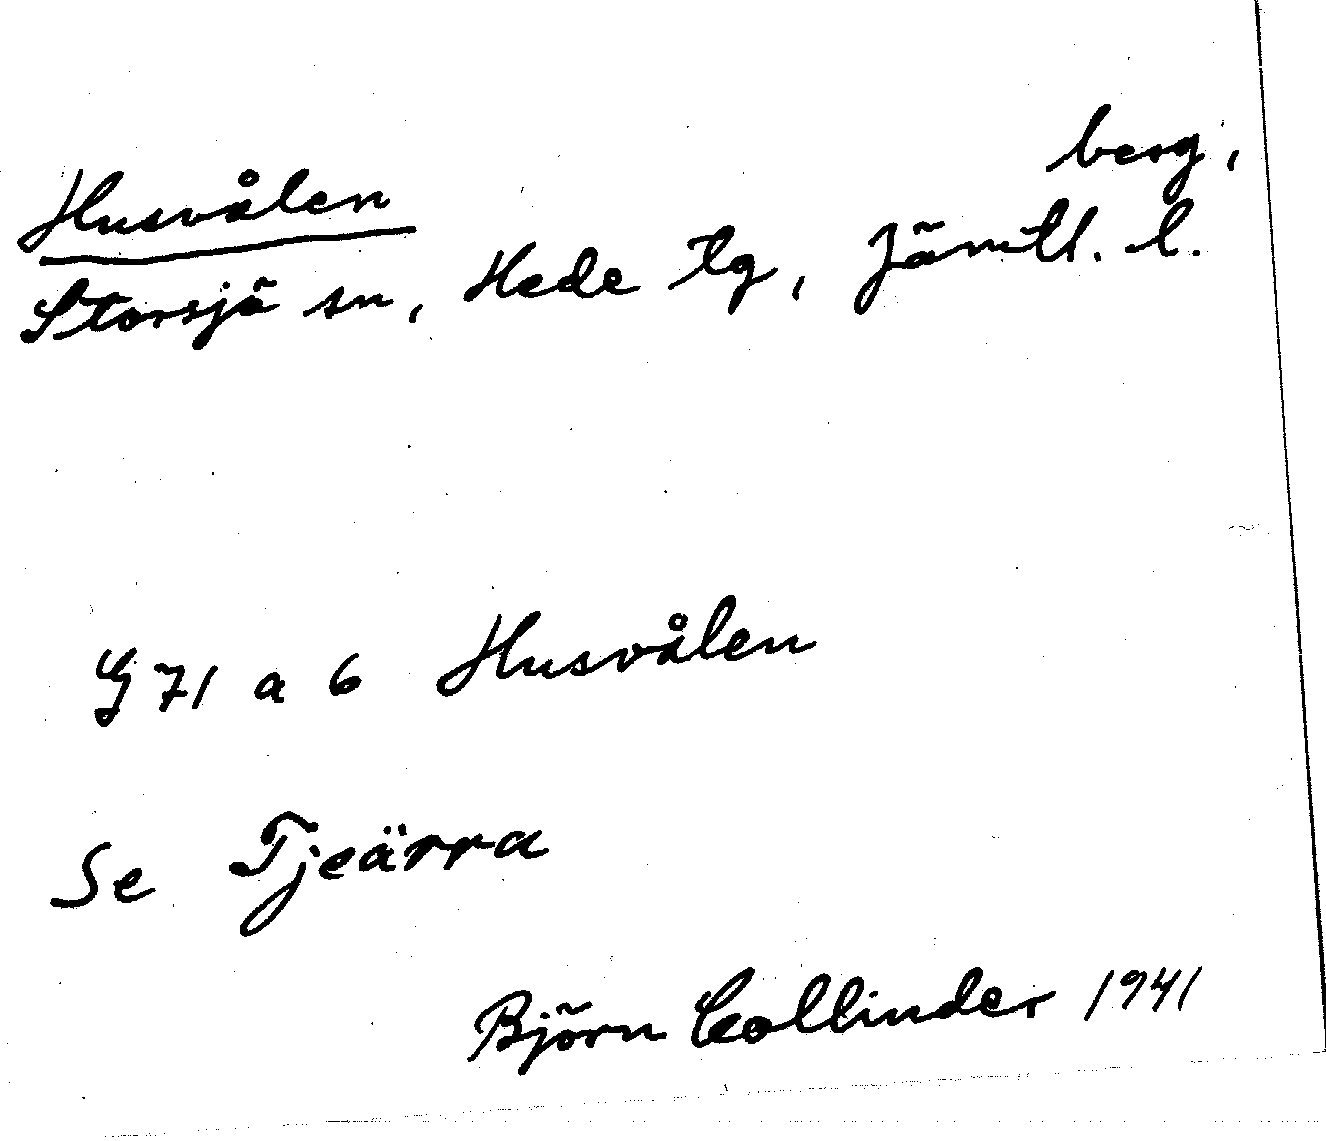 Husvålen berg,
Storsjö sn, Hede tg, Jämtl. l.
G 71 a 6 Husvålen
Se Tjeärra
Björn Collinder 1941